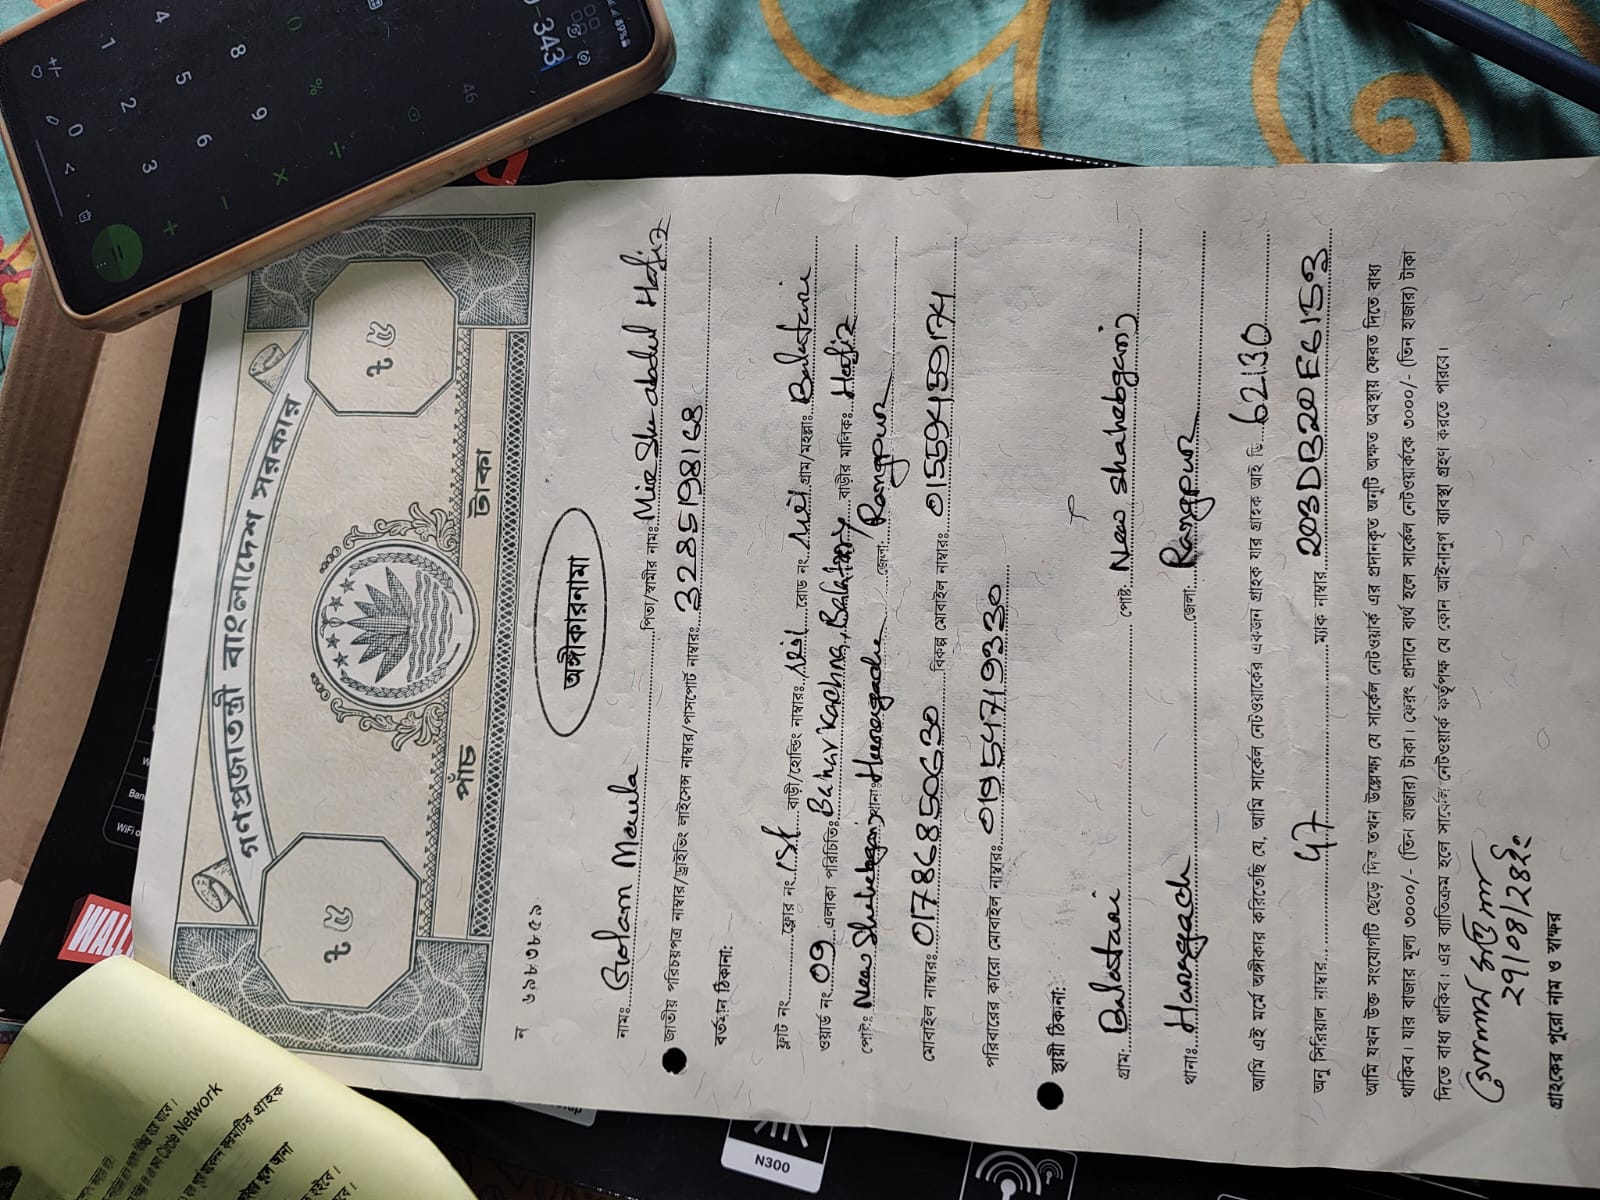 গণপ্রজাতন্ত্রী বাংলাদেশ সরকার
৫ ৳
৫ ৳
পাঁচ টাকা
ন ৬৯৮৩৮৫৯
অঙ্গীকারনামা
নামঃ Golam Moula পিতা/স্বামীর নামঃ Mir She abdul Hafiz
জাতীয় পরিচয়পত্র নাম্বার/ড্রাইভিং লাইসেন্স নাম্বার/পাসপোর্ট নাম্বারঃ 3285198168
বর্তমান ঠিকানা:
ফ্লাট নং ফ্লোর নং 1st বাড়ী/হোল্ডিং নাম্বারঃ রোড নং গ্রাম/মহল্লাঃ Balatari
ওয়ার্ড নং 09 এলাকা পরিচিতিঃ বাড়ীর মালিকঃ Hafiz
পোষ্টঃ New Shahebganj থানাঃ Haragach জেলা: Rangpur
মোবাইল নাম্বারঃ 01786850630 বিকল্প মোবাইল নাম্বারঃ 01559459174
পরিবারের কারো মোবাইল নাম্বারঃ 01954749330
স্থায়ী ঠিকানা:
গ্রাম: Balatari পোষ্ট: New Shahebganj
থানাঃ Haragach জেলা: Rangpur
আমি এই মর্মে অঙ্গীকার করিতেছি যে, আমি সার্কেল নেটওয়ার্কের একজন গ্রাহক যার গ্রাহক আই ডি 62130
অনু সিরিয়াল নাম্বার 47 ম্যাক নাম্বার 203DB20E6153
আমি যখন উক্ত সংযোগটি ছেড়ে দিব তখন উল্লেক্ষ্য যে সার্কেল নেটওয়ার্ক এর প্রদানকৃত অনুটি অক্ষত অবস্থায় ফেরত দিতে বাধ্য
থাকিব। যার বাজার মূল্য ৩০০০/- (তিন হাজার) টাকা। ফেরৎ প্রদানে ব্যর্থ হলে সার্কেল নেটওয়ার্ককে ৩০০০/- (তিন হাজার) টাকা
দিতে বাধ্য থাকিব। এর ব্যাতিক্রম হলে সার্কেল নেটওয়ার্ক কর্তৃপক্ষ যে কোন আইনানুগ ব্যাবস্থা গ্রহণ করতে পারবে।
গোলাম মাওলা
২৭/০৪/২৪ইং
গ্রাহকের পুরো নাম ও স্বাক্ষর
343
46
N300
WALL
Circle Network